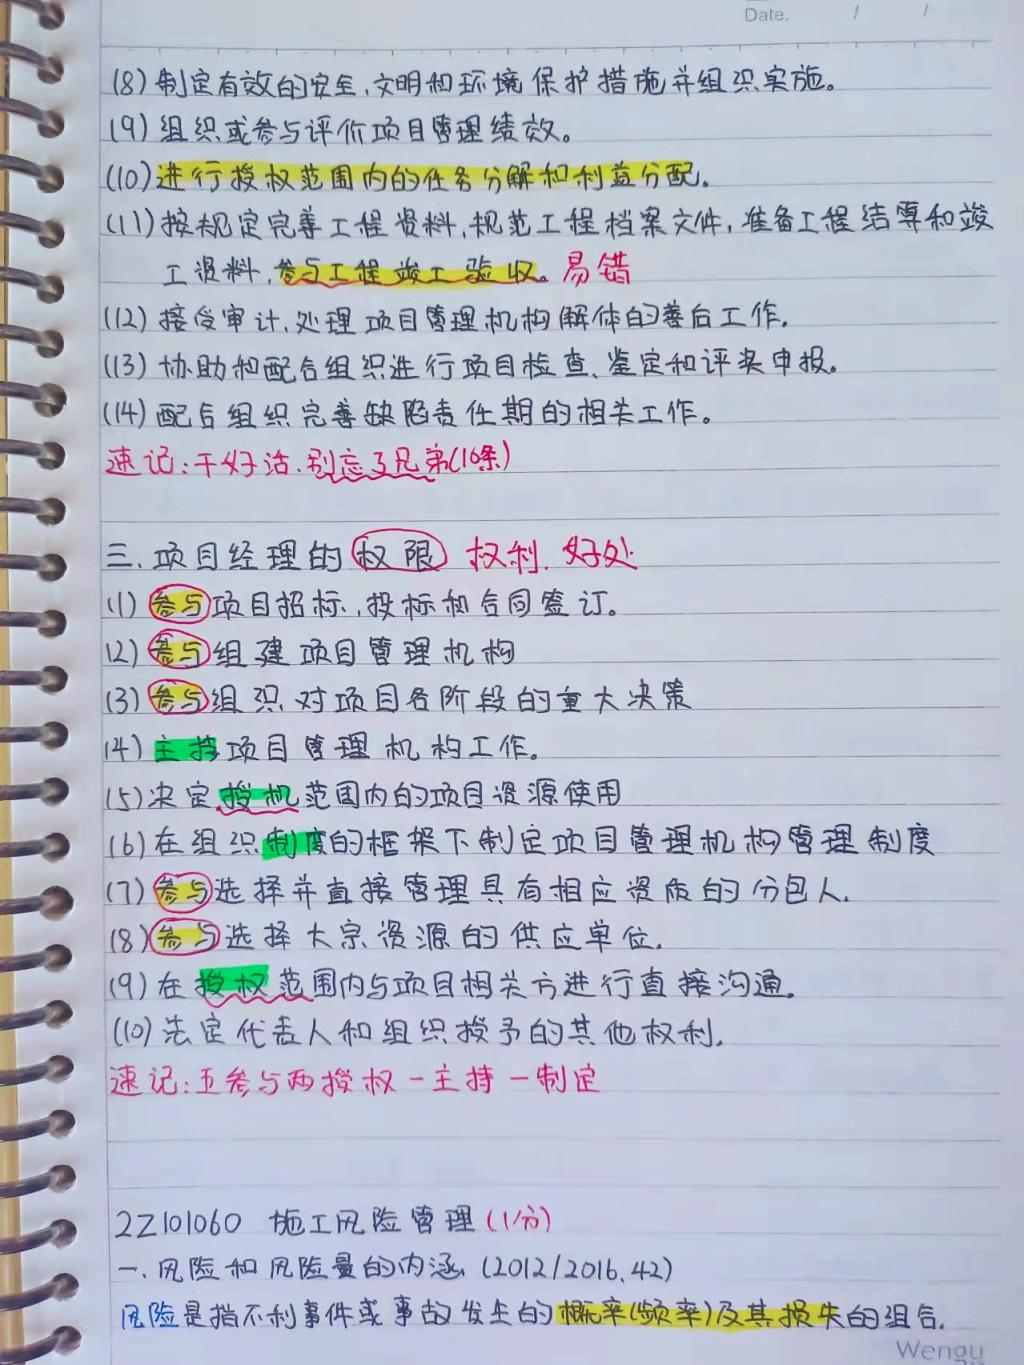 Date. / /
(8) 制定有效的安全、文明和环境保护措施并组织实施。
(9) 组织或参与评价项目管理绩效。
(10) 进行授权范围内的任务分解和利益分配。
(11) 按规定完善工程资料,规范工程档案文件,准备工程结算和竣
工资料,参与工程竣工验收。易错
(12) 接受审计,处理项目管理机构解体的善后工作。
(13) 协助和配合组织进行项目检查、鉴定和评奖申报。
(14) 配合组织完善缺陷责任期的相关工作。
速记:干好活,别忘了兄弟(10条)
三、项目经理的权限 权利、好处
(1) 参与项目招标、投标和合同签订。
(2) 参与组建项目管理机构
(3) 参与组织对项目各阶段的重大决策
(4) 主持项目管理机构工作。
(5) 决定授权范围内的项目资源使用
(6) 在组织制度的框架下制定项目管理机构管理制度
(7) 参与选择并直接管理具有相应资质的分包人.
(8) 参与选择大宗资源的供应单位.
(9) 在授权范围内与项目相关方进行直接沟通.
(10) 法定代表人和组织授予的其他权利.
速记:五参与两授权一主持一制定
2Z101060 施工风险管理(1分)
一、风险和风险量的内涵 (2012/2016.42)
风险是指不利事件或事故发生的概率(频率)及其损失的组合.
Wengu